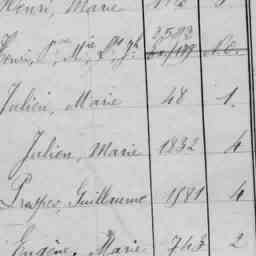 Henri, Marie
Henri, Pre, Mie, Ls, Jh 2,583 N.C.
Julien, Marie 48 1.
Julien, Marie 1832 4
Prosper, Guillaume 1981 4
Eugène, Marie 743 2